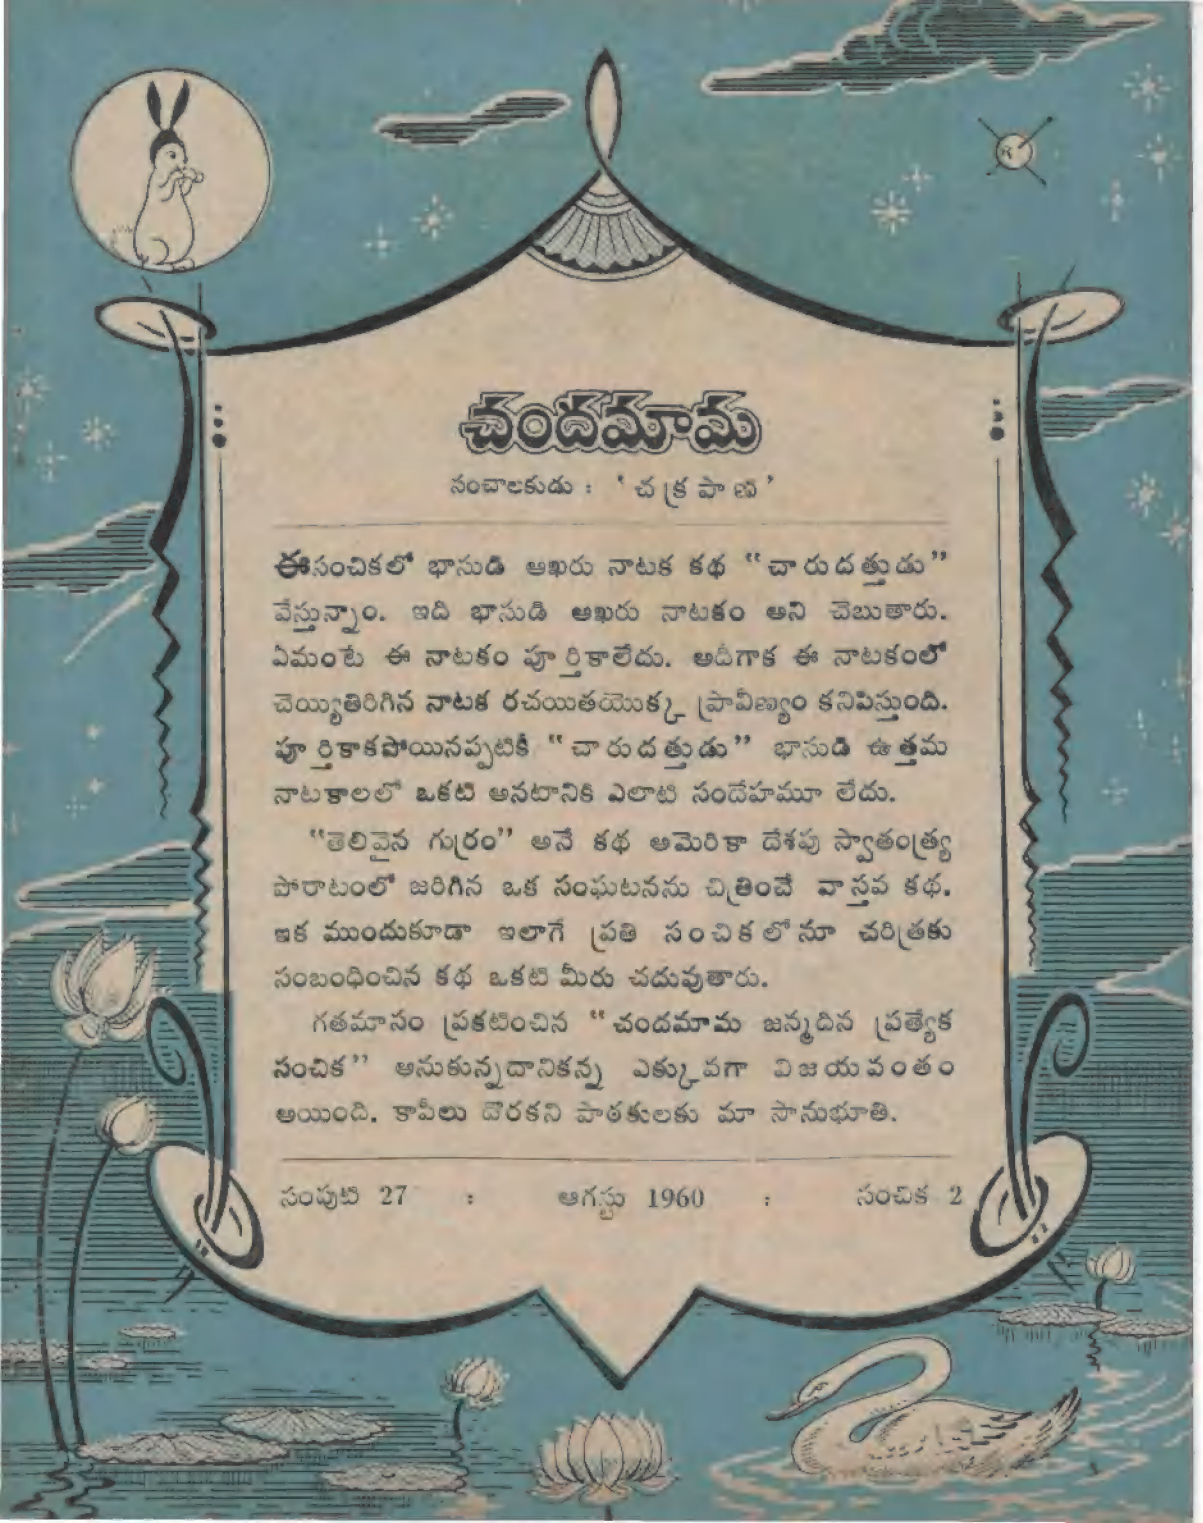 చందమామ
సంచాలకుడు : 'చక్రపాణి'
ఈసంచికలో భాసుడి ఆఖరు నాటక కథ "చారుదత్తుడు"
వేస్తున్నాం. ఇది భాసుడి ఆఖరు నాటకం అని చెబుతారు.
ఏమంటే ఈ నాటకం పూర్తికాలేదు. అదీగాక ఈ నాటకంలో
చెయ్యితిరిగిన నాటక రచయితయొక్క ప్రావీణ్యం కనిపిస్తుంది.
పూర్తికాకపోయినప్పటికీ "చారుదత్తుడు" భాసుడి ఉత్తమ
నాటకాలలో ఒకటి అనటానికి ఎలాటి సందేహమూ లేదు.
"తెలివైన గుర్రం" అనే కథ అమెరికా దేశపు స్వాతంత్ర్య
పోరాటంలో జరిగిన ఒక సంఘటనను చిత్రించే వాస్తవ కథ.
ఇక ముందుకూడా ఇలాగే ప్రతి సంచికలోనూ చరిత్రకు
సంబంధించిన కథ ఒకటి మీరు చదువుతారు.
గతమాసం ప్రకటించిన "చందమామ జన్మదిన ప్రత్యేక
సంచిక" అనుకున్నదానికన్న ఎక్కువగా విజయవంతం
అయింది. కాపీలు దొరకని పాఠకులకు మా సానుభూతి.
సంపుటి 27 : ఆగస్టు 1960 : సంచిక 2